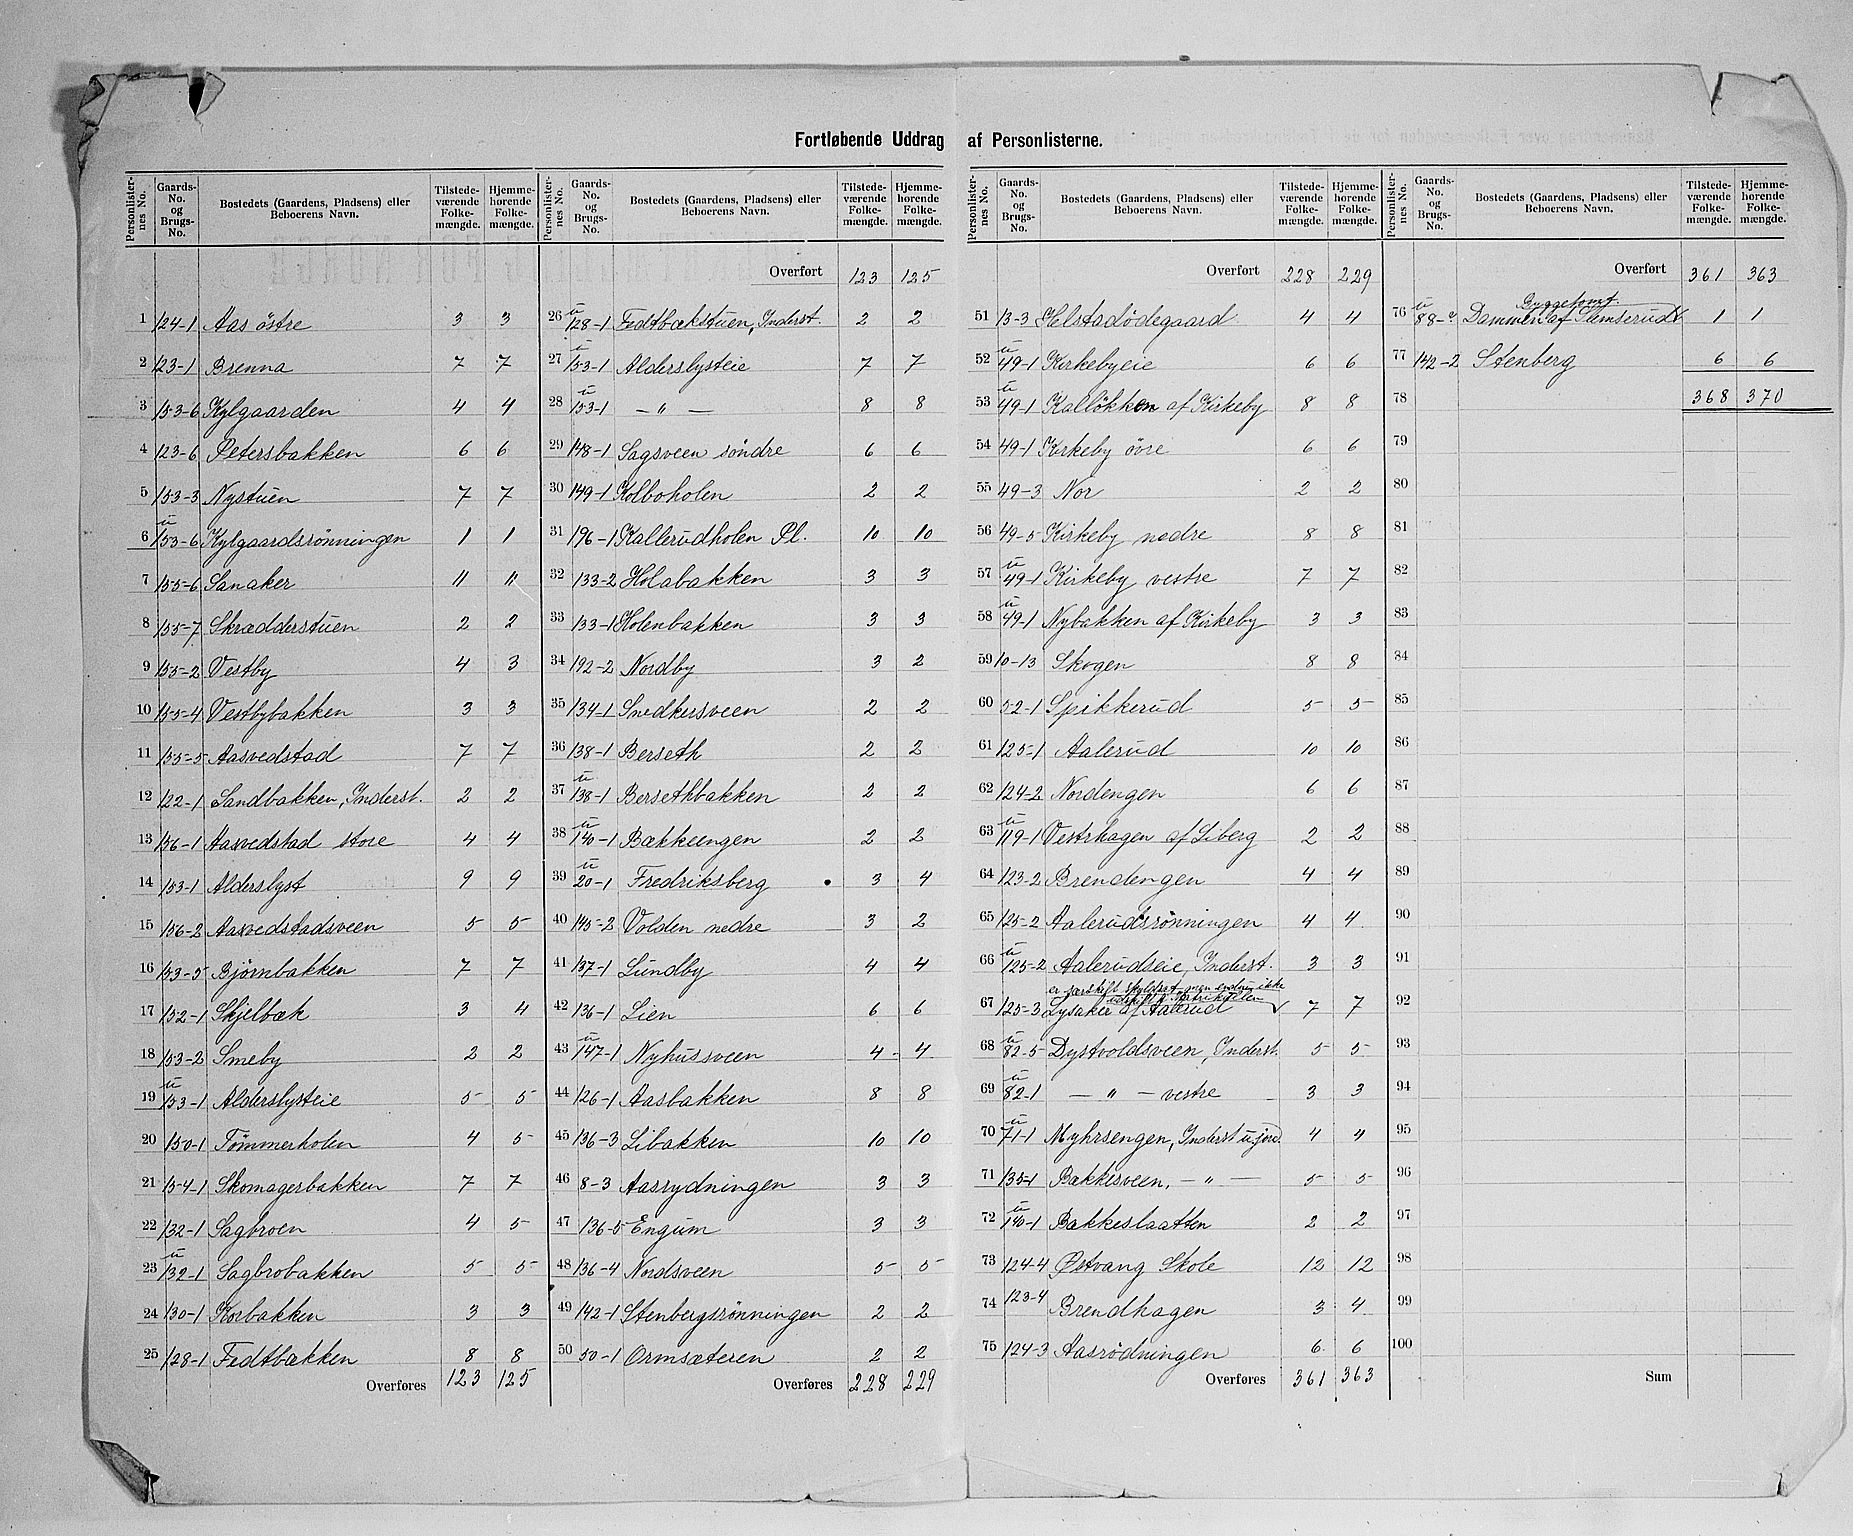 Fortløbende Uddrag af Personlisterne.
Personlisternes No. Gaards-No. og Brugs-No. Bostedets (Gaardens, Pladsens) eller Beboerens Navn. Tilstedeværende Folkemængde. Hjemmehørende Folkemængde.
1 124-1 Aas östre 3 3
2 123-1 Brenna 7 7
3 153-6 Kylgaarden 4 4
4 123-6 Petersbakken 6 6
5 153-3 Nystuen 7 7
6 u 153-6 Kylgaardsrönningen 1 1
7 155-6 Sanaker 11 11
8 155-7 Skrædderstuen 2 2
9 155-2 Vestby 4 3
10 155-4 Vestbybakken 3 3
11 155-5 Aasvedstad 7 7
12 122-1 Sandbakken, Inderst. 2 2
13 156-1 Aasvedstad store 4 4
14 153-1 Alderslyst 9 9
15 156-2 Aasvedstadsveen 5 5
16 153-5 Bjørnbakken 7 7
17 152-1 Skjelbæk 3 4
18 153-2 Smeby 2 2
19 u 153-1 Alderslysteie 5 5
20 150-1 Tömmerholen 4 5
21 154-1 Skomagerbakken 7 7
22 132-1 Sagbroen 4 5
23 u 132-1 Sagbrobakken 5 5
24 130-1 Korbakken 3 3
25 128-1 Fedtbækken 8 8
Overføres 123 125
Personlisternes No. Gaards-No. og Brugs-No. Bostedets (Gaardens, Pladsens) eller Beboerens Navn. Tilstedeværende Folkemængde. Hjemmehørende Folkemængde.
Overført 123 125
26 u 128-1 Fedtbækstuen, Inderst. 2 2
27 u 153-1 Alderslysteie 7 7
28 u 153-1 — " — 8 8
29 148-1 Sagsveen söndre 6 6
30 149-1 Kolboholen 2 2
31 196-1 Kallerudholen Pl. 10 10
32 133-2 Holabakken 3 3
33 133-1 Holenbakken 3 3
34 192-2 Nordby 3 2
35 134-1 Snedkersveen 2 2
36 138-1 Berseth 2 2
37 u 138-1 Bersethbakken 2 2
38 u 140-1 Bækkeengen 2 2
39 u 20-1 Fredriksberg 3 4
40 145-2 Volden nedre 3 2
41 137-1 Lundby 4 4
42 136-1 Lien 6 6
43 u 147-1 Nyhusveen 4 4
44 126-1 Aasbakken 8 8
45 136-3 Libakken 10 10
46 8-3 Aasrydningen 3 3
47 136-5 Engum 3 3
48 136-4 Nordsveen 5 5
49 142-1 Stenbergsrönningen 2 2
50 50-1 Ormsæteren 2 2
Overføres 228 229
Personlisternes No. Gaards-No. og Brugs-No. Bostedets (Gaardens, Pladsens) eller Beboerens Navn. Tilstedeværende Folkemængde. Hjemmehørende Folkemængde.
Overført 228 229
51 13-3 Helstadödegaard 4 4
52 u 49-1 Kirkebyeie 6 6
53 u 49-1 Kallökken af Kirkeby 8 8
54 49-1 Kirkeby övre 6 6
55 49-3 Nor 2 2
56 49-5 Kirkeby nedre 8 8
57 u 49-1 Kirkeby vestre 7 7
58 u 49-1 Nybakken af Kirkeby 3 3
59 10-13 Skogen 8 8
60 52-1 Spikkerud 5 5
61 125-1 Aalerud 10 10
62 124-2 Nordengen 6 6
63 u 119-1 Vestrhagen af Liberg 2 2
64 123-2 Brendengen 4 4
65 125-2 Aalerudsrönningen 4 4
66 u 125-2 Aalerudseie, Inderst. 3 3
er særskilt skyldsat men endnu ikke
67 125-3 Lysaker af Aalerud 7 7
68 u 82-5 Dystvoldsveen, Inderst. 5 5
69 u 82-1 — " — vestre 3 3
70 u 71-1 Myhrsengen, Inderst u. jord. 4 4
71 135-1 Bækkesveen, — " — 5 5
72 u 140-1 Bakkeslaatten 2 2
73 124-4 Østvang Skole 12 12
74 123-4 Brendhagen 3 4
75 124-3 Aasrödningen 6 6
Overføres 361 363
Personlisternes No. Gaards-No. og Brugs-No. Bostedets (Gaardens, Pladsens) eller Beboerens Navn. Tilstedeværende Folkemængde. Hjemmehørende Folkemængde.
Overført 361 363
Byggetomt.
76 u 88- Dammen af Slemserud 1 1
77 142-2 Stenberg 6 6
78 368 370
79
80
81
82
83
84
85
86
87
88
89
90
91
92
93
94
95
96
97
98
99
100
Sum